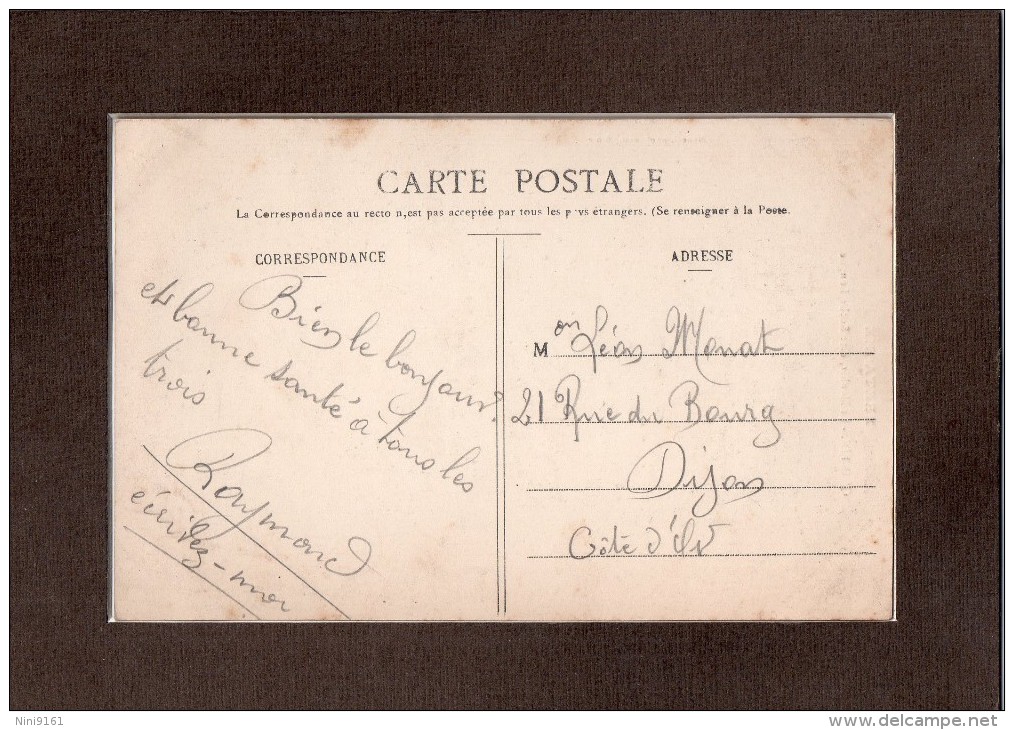 CARTE POSTALE
La Correspondance au recto n'est pas acceptée par tous les pays étrangers. (Se renseigner à la Poste.
CORRESPONDANCE
Bien le bonjour
et bonne santé à tous les
trois
Raymond
écrivez-moi
ADRESSE
Mon Léon Monat
21 Rue du Bourg
Dijon
Côte d'Or
Nini9161
www.delcampe.net